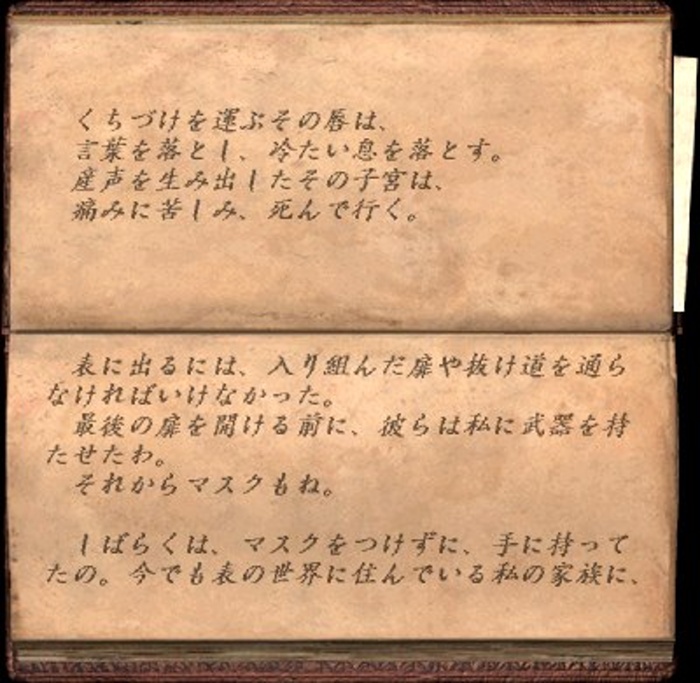 くちづけを運ぶその唇は、
言葉を落とし、冷たい息を落とす。
産声を生み出したその子宮は、
痛みに苦しみ、死んで行く。
表に出るには、入り組んだ扉や抜け道を通ら
なければいけなかった。
最後の扉を開ける前に、彼らは私に武器を持
たせたわ。
それからマスクもね。
しばらくは、マスクをつけずに、手に持って
たの。今でも表の世界に住んでいる私の家族に、